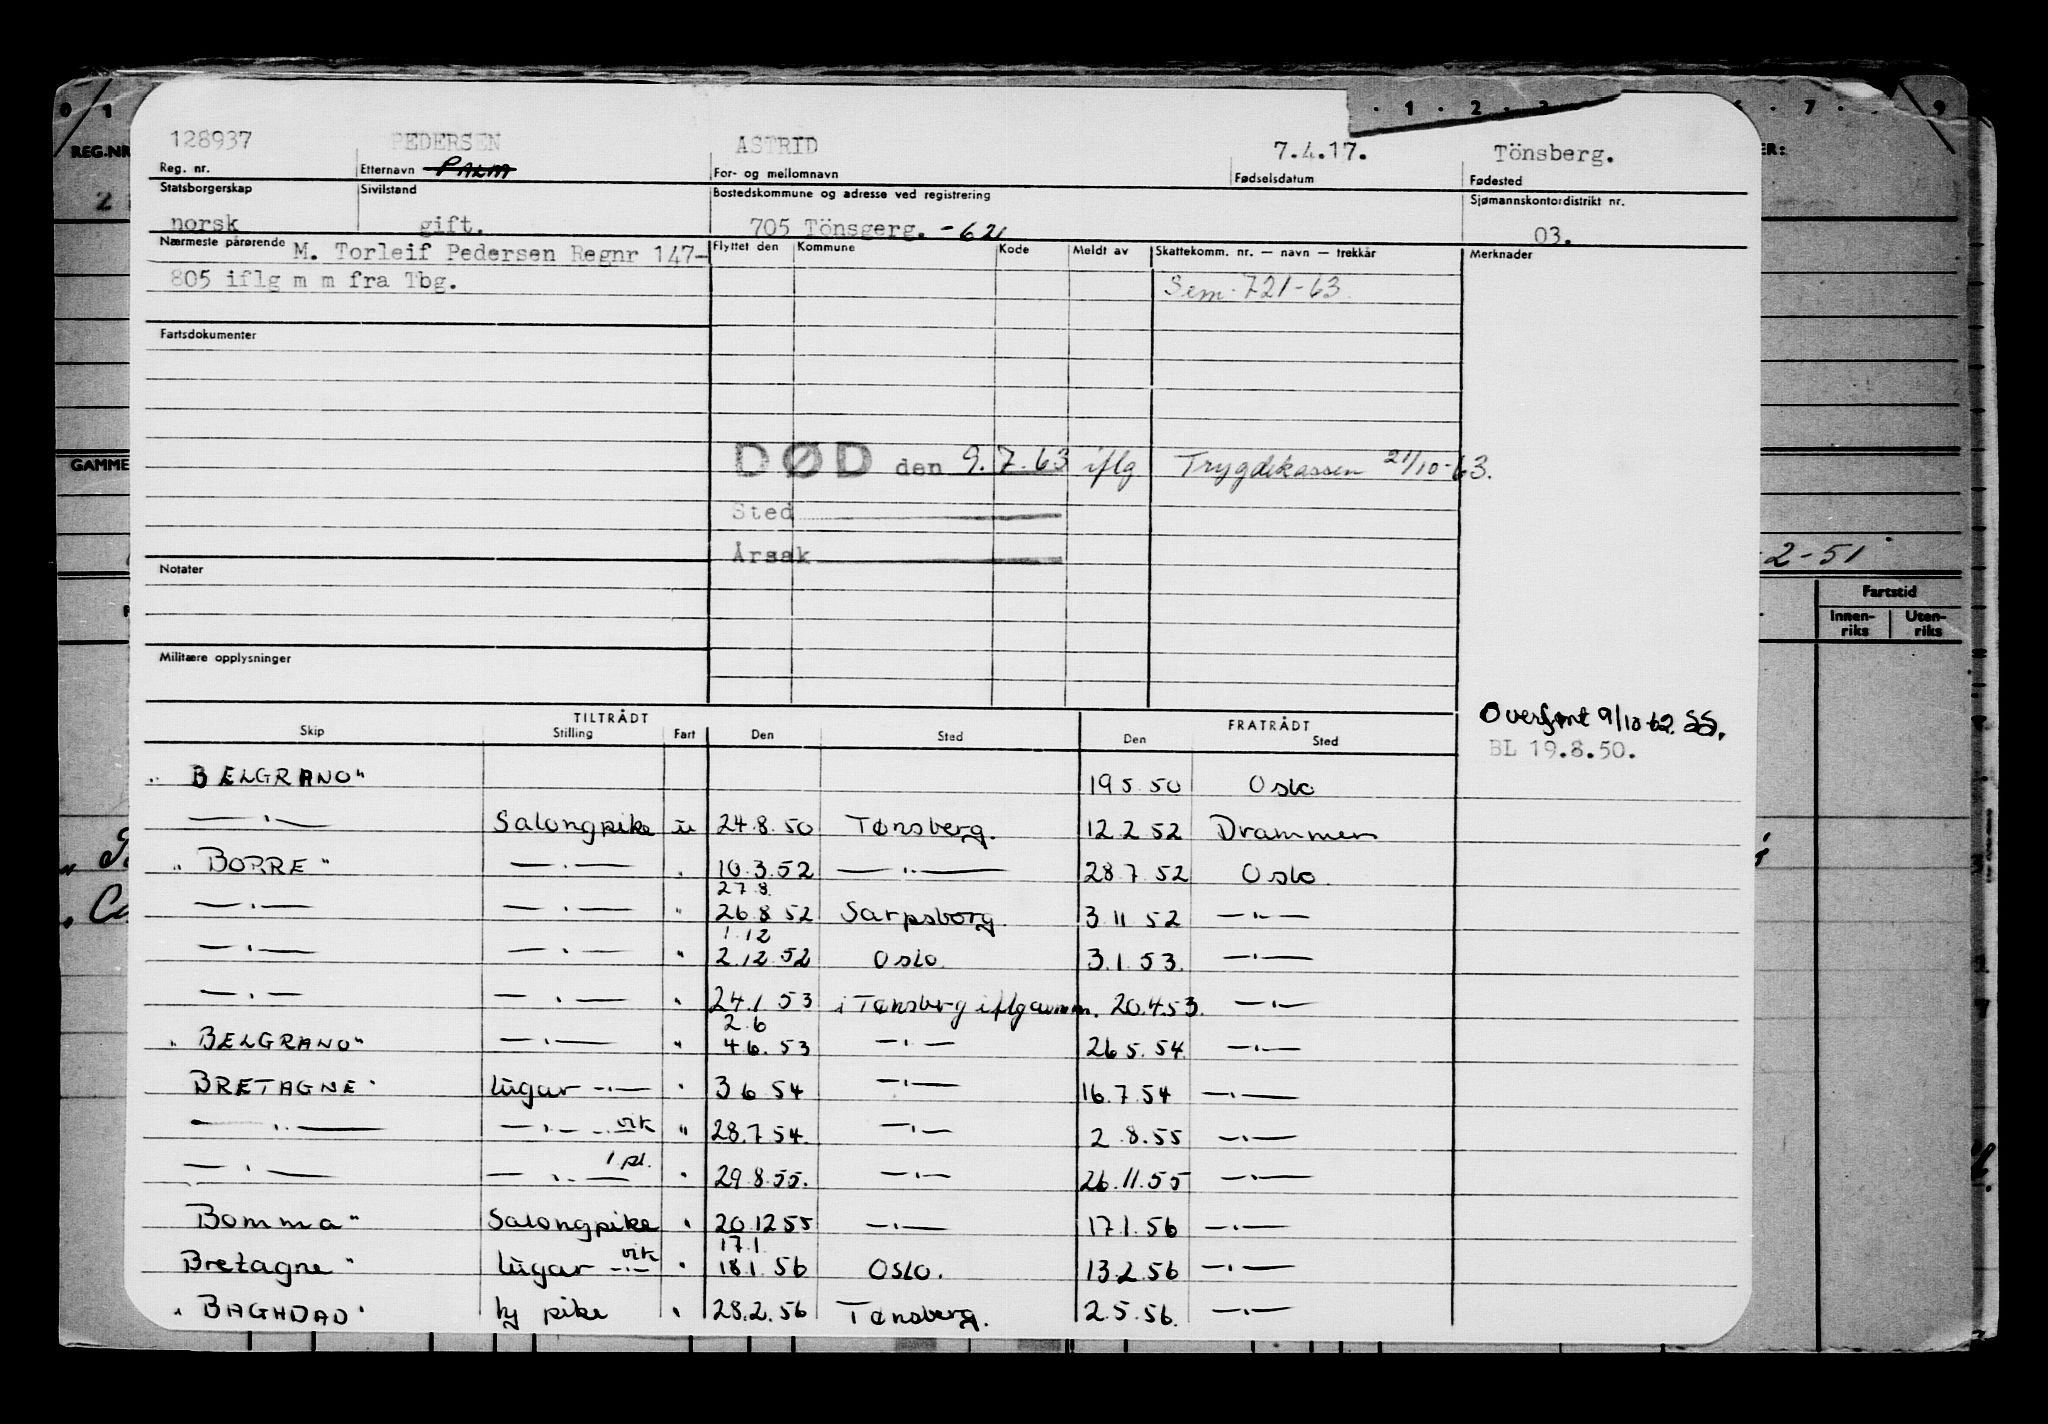 0 1 · 1 · 2 · 3 6 · 7 · 9
REG.NR
128937 PEDERSEN ASTRID 7.4.17. Tönsberg.
Reg. nr. Etternavn PALM For- og mellomnavn Fødselsdatum Fødested
Statsborgerskap Sivilstand Bostedskommune og adresse ved registrering Sjømannskontordistrikt nr.
2 norsk gift. 705 Tönsgerg. -621 03.
Nærmeste pårørende M. Torleif Pedersen Regnr 147- Flyttet den Kommune Kode Meldt av Skattekomm. nr. — navn — trekkår Merknader
805 iflg m m fra Tbg. Sem. 721-63.
Fartsdokumenter
GAMME
DØD den 9.7.63 iflg Trygdekassen 21/10-63.
Sted
Årsak
-2-51
Notater
Fartstid
Innen-riks Uten-riks
Militære opplysninger
Overført 9/10-62. SS.
TILTRÅDT FRATRÅDT
Skip Stilling Fart Den Sted Den Sted
BL 19.8.50.
" BELGRANO" 19 5 50 Oslo
—"— Salongpike u 24.8.50 Tønsberg. 12 2 52 Drammen
" BORRE" —"— " 10.3.52 —"— 28.7.52 Oslo.
27 8.
—"— —"— " 26 8 52 Sarpsborg. 3 11 52 —"—
1.12
—"— —"— " 2.12.52 Oslo. 3.1.53. —"—
—"— —"— " 24.1 53 i Tønsberg iflg avm. 20.4.53. —"—
2.6
" BELGRANO" —"— " 4 6.53 —"— 26 5.54. —"—
BRETAGNE" lugar —"— " 3 6 54 —"— 16.7.54 —"—
—"— —"— vik " 28.7 54. —"— 2 8.55 —"—
—"— —"— 1 pl. " 29 8.55. —"— 26.11.55 —"—
Bomma" Salongpike " 20.12 55 —"— 17.1.56 —"—
17.1.
Bretagne" lugar —"— vik " 18.1.56 Oslo. 13.2.56 —"—
" BAGHDAD" by pike " 28.2.56 Tønsberg. 2.5.56. —"—